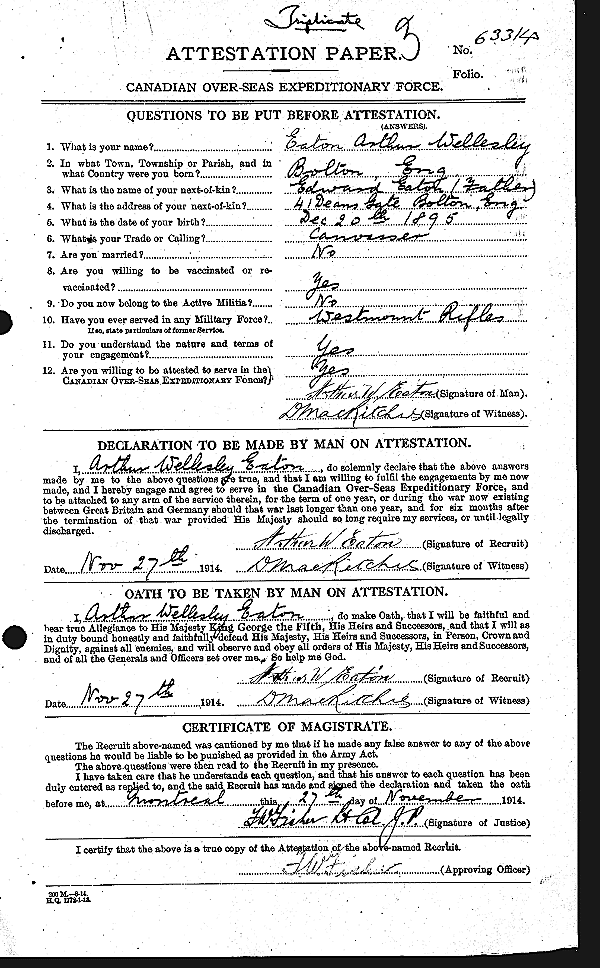 Triplicate
3
ATTESTATION PAPER.
No. 63314
Folio.
CANADIAN OVER-SEAS EXPEDITIONARY FORCE.
QUESTIONS TO BE PUT BEFORE ATTESTATION.
(ANSWERS).
1. What is your name? Eaton Arthur Wellesley
2. In what Town, Township or Parish, and in
what Country were you born? Bolton, Eng
3. What is the name of your next-of-kin? Edward Eaton (Father)
4. What is the address of your next-of-kin? 41 Deans Gate Bolton Eng
5. What is the date of your birth? Dec 20th 1895
6. What is your Trade or Calling? Canvasser
7. Are you married? No
8. Are you willing to be vaccinated or re-
vaccinated? Yes
9. Do you now belong to the Active Militia? No
10. Have you ever served in any Military Force? Westmount Rifles
If so, state particulars of former Service.
11. Do you understand the nature and terms of
your engagement? Yes
12. Are you willing to be attested to serve in the
CANADIAN OVER-SEAS EXPEDITIONARY FORCE? Yes
Arthur W Eaton (Signature of Man).
D MacRitchie (Signature of Witness).
DECLARATION TO BE MADE BY MAN ON ATTESTATION.
I, Arthur Wellesley Eaton, do solemnly declare that the above answers
made by me to the above questions are true, and that I am willing to fulfil the engagements by me now
made, and I hereby engage and agree to serve in the Canadian Over-Seas Expeditionary Force, and
to be attached to any arm of the service therein, for the term of one year, or during the war now existing
between Great Britain and Germany should that war last longer than one year, and for six months after
the termination of that war provided His Majesty should so long require my services, or until legally
discharged.
Arthur W Eaton (Signature of Recruit)
Date Nov 27th 1914. D MacRitchie (Signature of Witness)
OATH TO BE TAKEN BY MAN ON ATTESTATION.
I, Arthur Wellesley Eaton, do make Oath, that I will be faithful and
bear true Allegiance to His Majesty King George the Fifth, His Heirs and Successors, and that I will as
in duty bound honestly and faithfully defend His Majesty, His Heirs and Successors, in Person, Crown and
Dignity, against all enemies, and will observe and obey all orders of His Majesty, His Heirs and Successors,
and of all the Generals and Officers set over me. So help me God.
Arthur W Eaton (Signature of Recruit)
Date Nov 27th 1914. D MacRitchie (Signature of Witness)
CERTIFICATE OF MAGISTRATE.
The Recruit above-named was cautioned by me that if he made any false answer to any of the above
questions he would be liable to be punished as provided in the Army Act.
The above questions were then read to the Recruit in my presence.
I have taken care that he understands each question, and that his answer to each question has been
duly entered as replied to, and the said Recruit has made and signed the declaration and taken the oath
before me, at Montreal this 27th day of November 1914.
FW Fisher Lt Col J.P. (Signature of Justice)
I certify that the above is a true copy of the Attestation of the above-named Recruit.
FW Fisher (Approving Officer)
200 M.—8-14.
H.Q. 1772-1-13.